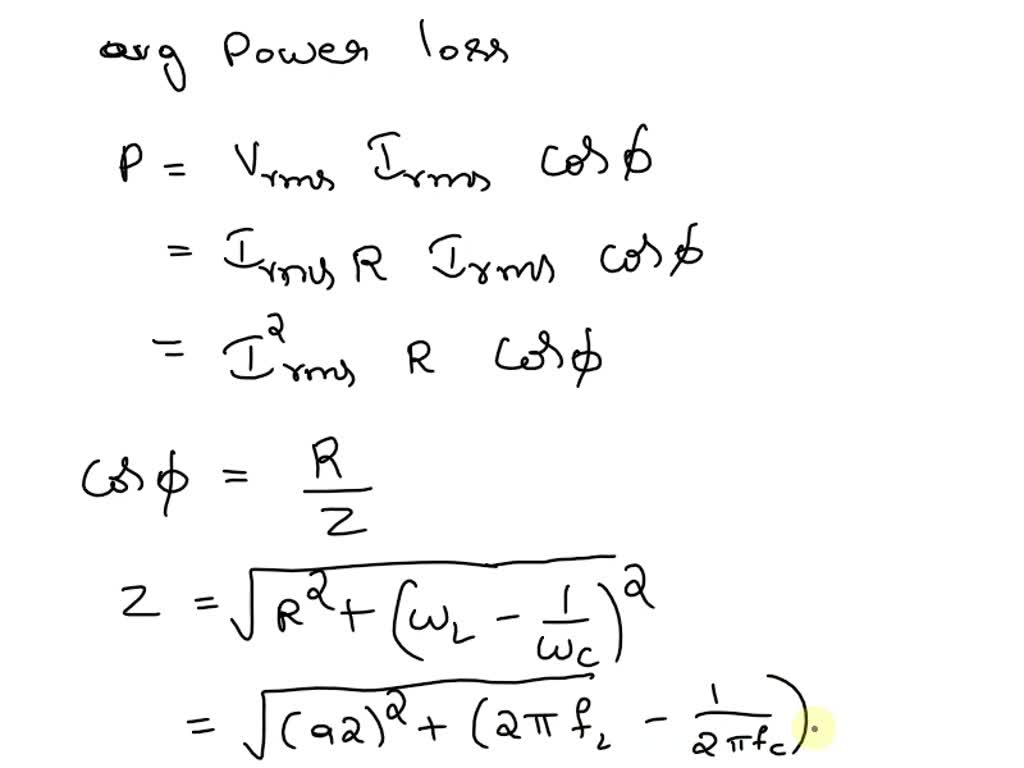 avg Power loss
P = Vrms Irms cosϕ
= Irms R Irms cosϕ
= I²rms R cosϕ
cosϕ = R/Z
Z = √(R² + (ωL - 1/ωC)²
= √(92)² + (2πfL - 1/2πfC).